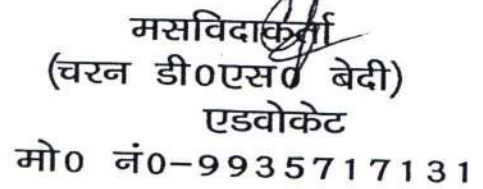 मसविदाकर्ता
(चरन डी0एस0 बेदी)
एडवोकेट
मो0 नं0-9935717131